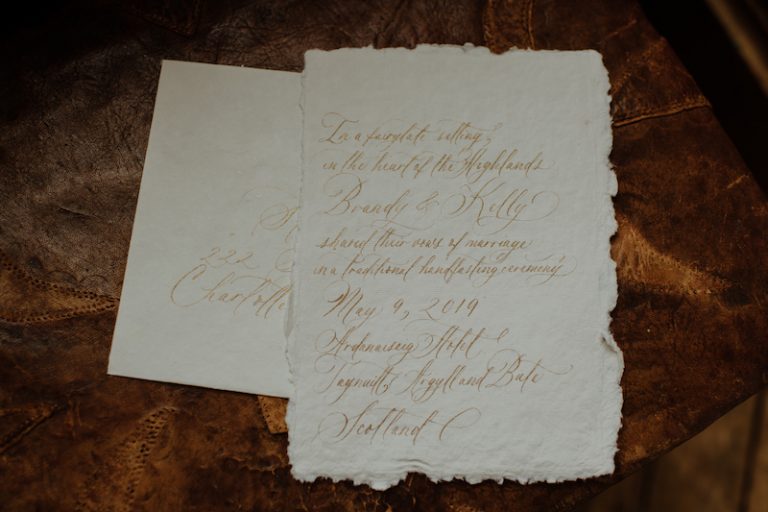 In a fairytale setting,
in the heart of the Highlands
Brandy & Kelly
shared their vows of marriage
in a traditional handfasting ceremony
May 9, 2019
Ardanaiseig Hotel
Taynuilt, Argylland Bute
Scotland
S
222
Charlotte